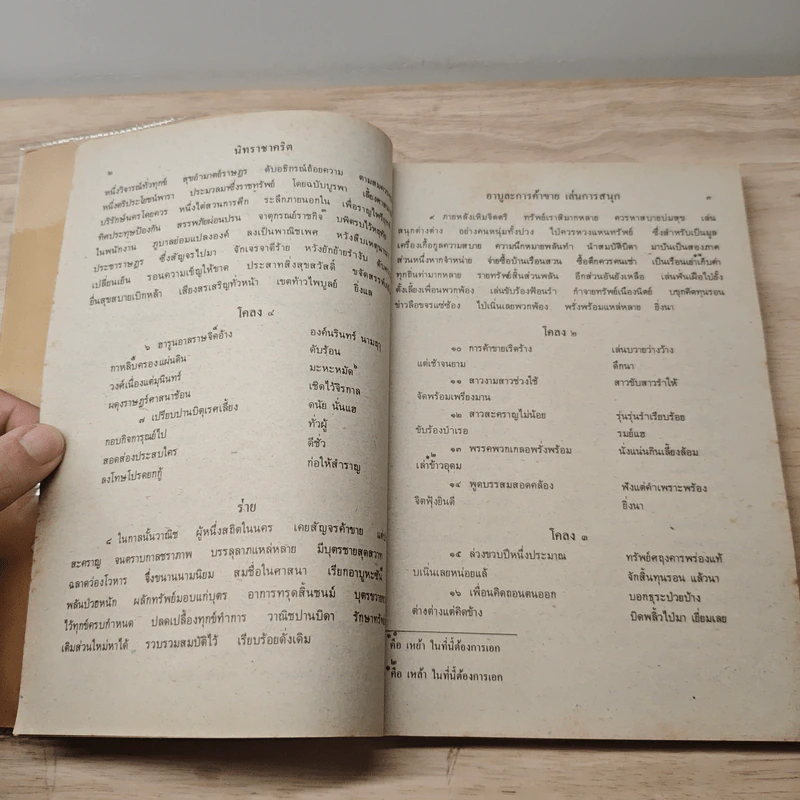 นิทราชาคริต
๒
หนึ่งวิจารณ์ทั่วทุกข์ สุขอำมาตย์ราษฎร ดับอธิกรณ์ถ้อยความ
หนึ่งตริประโยชน์พารา ประมวลมาซึ่งราชทรัพย์ โดยฉบับบูรพา
บริรักษ์นครโดยควร หนึ่งไต่สวนการศึก ระลึกภายนอกใน
ทิศประทุษป้องกัน สรรพภัยผ่อนปรน จาตุกรณ์ราชกิจ
ในพนักงาน ภูบาลย่อมแปลงองค์ ลงเป็นพาณิชเพศ
ประชาราษฎร ซึ่งสัญจรไปมา จักเจรจาดีร้าย หวังยักย้ายรำงับ
เปลี่ยนเย็น รอนความเข็ญให้ขาด ประสาทสิ่งสุขสวัสดิ์
ยื่นสุขสบายเบิกหล้า เสียงสรเสริญทั่วหน้า เขตท้าวไพบูลย์ ยิ่งแล
โคลง ๔
๖ ฮารูนอาลราษจิดอ้าง องค์นรินทร์
กาหลิบครองแผ่นดิน ดับร้อน
วงศ์เนื่องแต่มุนินทร์ มะหะหมัด
ผดุงราษฎร์ศาสนาซ้อน เชิดไว้จิรกาล
๗ เปรียบปานบิตุเรศเลี้ยง ดนัย นั่นแฮ
กอบกิจการุณย์ไป ทั่วผู้
สอดส่องประสบใคร ดีชั่ว
ลงโทษโปรดยกกู้ ก่อให้สำราญ
ร่าย
๘ ในกาลนั้นวาณิช ผู้หนึ่งสถิตในนคร เคยสัญจรค้าขาย
สะคราญ จนตราบกาลชราภาพ บรรลุลาภแหล่หลาย มีบุตรชายสุดสวาท
ฉลาดว่องโวหาร จึ่งขนานนามนิยม สมชื่อในศาสนา เรียกอาบูหะซัน
พลันป่วยหนัก ผลักทรัพย์มอบแก่บุตร อาการทรุดสิ้นชนม์
ไว้ทุกข์ครบกำหนด ปลดเปลื้องทุกข์ทำการ วาณิชปานบิดา
เดิมส่วนใหม่หาได้ รวบรวมสมบัติไว้ เรียบร้อยดังเดิม
อาบูละการค้าขาย เล่นการสนุก ๓
๙ ภายหลังเหิมจิตตรี ทรัพย์เรามีมากหลาย ควรหาสบายบ่มสุข เล่น
สนุกต่างต่าง อย่างคนหนุ่มทั้งปวง ไป่ควรหวงแหนทรัพย์ ซึ่งสำหรับเป็นมูล
เครื่องเกื้อกูลความสบาย ความนึกหมายพลันทำ นำสมบัติบิดา มาปันเป็นสองภาค
ส่วนหนึ่งหากจำหน่าย จ่ายซื้อบ้านเรือนสวน ซื้อตึกควรคนเช่า เป็นเรือนเย่าเก็บค่า
ทุกยืนท่ามากหลาย รายทรัพย์ส้วนสงัน อีกส่วนอันยังเหลือ เล่นฟั่นเฝือไป่ยั้ง
ตั้งเลี้ยงเพื่อนพวกพ้อง เล่นขับร้องฟ้อนรำ กำจายทรัพย์เนืองนิตย์ บชุกคิดทุนรอน
ข่าวลือขจรแซ่ซ้อง ไปเนิ่นเลยพวกพ้อง พรั่งพร้อมแหล่หลาย ยิ่งนา
โคลง ๒
๑๐ การค้าขายเริดร้าง เล่นบวายว่างว้าง
แต่เช้าจนยาม ดึกนา
๑๑ สาวงามสาวช่วงใช้ สาวขับสาวรำให้
จัดพร้อมเพรียงมาน
๑๒ สาวสะคราญไม่น้อย รุ่นรุ่นรำเรียบร้อย
ขับร้องบำเรอ รมย์แฮ
๑๓ พรรคพวกเกลอพรั่งพร้อม นั่งแน่นกินเลี้ยงล้อม
เล่าข้าวอุดม
๑๔ พูดบรรสมสอดคล้อง ฟังแต่คำเพราะพร้อง
จิตฟุ้งยินดี ยิ่งนา
โคลง ๓
๑๕ ล่วงขวบปีหนึ่งประมาณ ทรัพย์ศฤงคารพร่องแท้
บเนิ่นเลยหน่อยแล้ จักสิ้นทุนรอน แล้วนา
๑๖ เพื่อนคิดถอนตนออก บอกธุระป่วยบ้าง
ต่างต่างแต่คิดข้าง บิดพลิ้วไป่มา เยี่ยมเลย
๑ คือ เหย้า ในที่นี้ต้องการเอก
๒ คือ เหล้า ในที่นี้ต้องการเอก